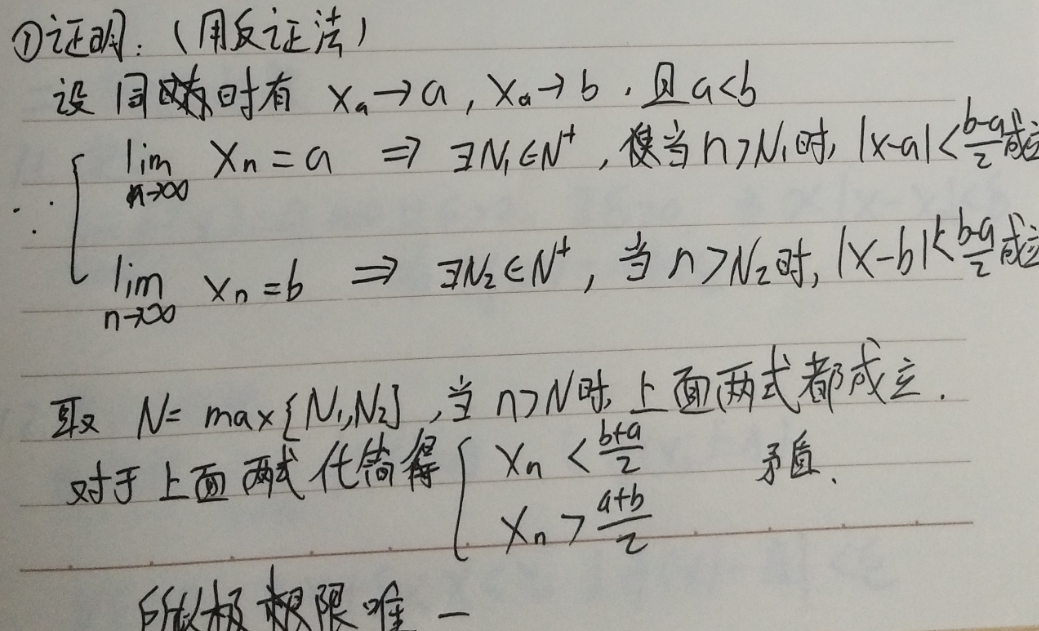 ①证明：（用反证法）
设同时有 xₐ→a , xₐ→b . 且a<b
∵ { lim n→∞ xn = a ⇒ ∃N₁∈N⁺ , 使当 n>N₁时, |x-a|<(b-a)/2 成立
lim n→∞ xn = b ⇒ ∃N₂∈N⁺ , 当 n>N₂时, |x-b|<(b-a)/2 成立
取 N= max{N₁,N₂} , 当 n>N时, 上面两式都成立.
对于上面两式化简得 { xn < (b+a)/2 矛盾.
xn > (a+b)/2
所以极限唯一